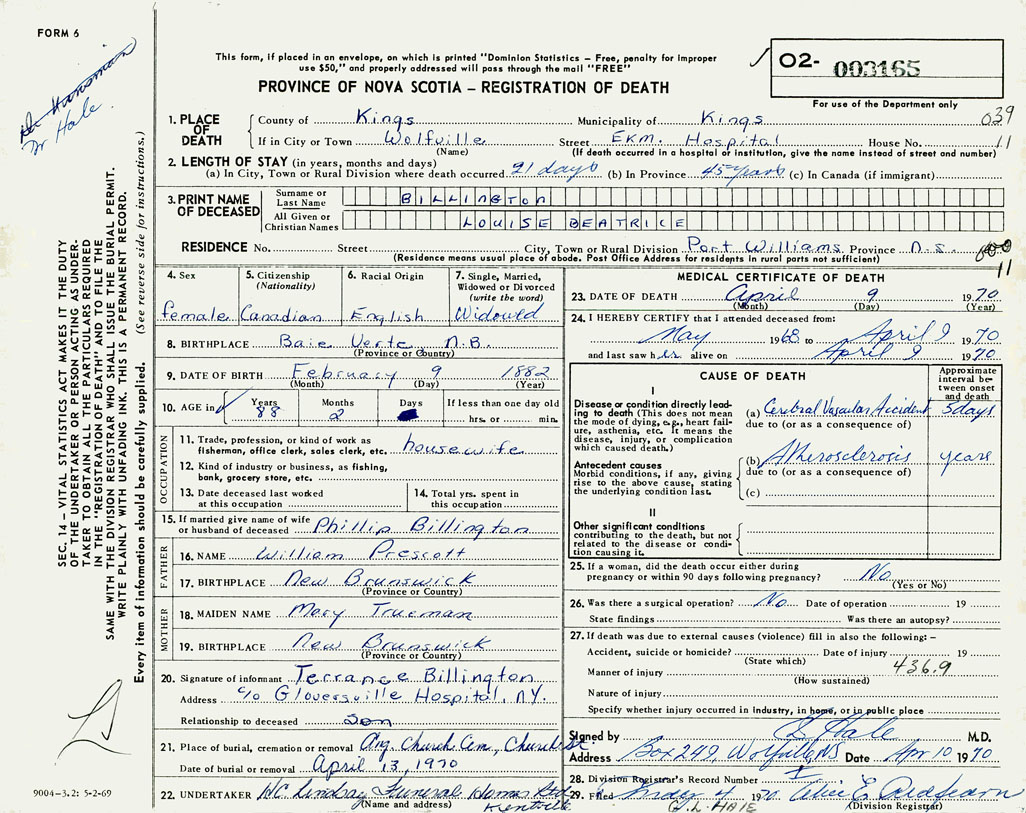 FORM 6
Dr Hansman
Dr Hale.
This form, if placed in an envelope, on which is printed "Dominion Statistics – Free, penalty for improper
use $50," and properly addressed will pass through the mail "FREE"
PROVINCE OF NOVA SCOTIA – REGISTRATION OF DEATH
02- 003165
For use of the Department only
039
1. PLACE OF DEATH County of Kings Municipality of Kings
If in City or Town Wolfville Street EKM. Hospital House No. 11
(Name) (If death occurred in a hospital or institution, give the name instead of street and number)
2. LENGTH OF STAY (in years, months and days)
(a) In City, Town or Rural Division where death occurred 21 days (b) In Province 45 years (c) In Canada (if immigrant)
3. PRINT NAME OF DECEASED Surname or Last Name BILLINGTON
All Given or Christian Names LOUISE BEATRICE
RESIDENCE No. Street City, Town or Rural Division Port Williams Province N.S.
(Residence means usual place of abode. Post Office Address for residents in rural parts not sufficient)
11
4. Sex female
5. Citizenship (Nationality) Canadian
6. Racial Origin English
7. Single, Married, Widowed or Divorced (write the word) Widowed
8. BIRTHPLACE Baie Verte N.B.
(Province or Country)
9. DATE OF BIRTH February 9 1882
(Month) (Day) (Year)
10. AGE in Years 88 Months 2 Days If less than one day old hrs. or min.
OCCUPATION
11. Trade, profession, or kind of work as fisherman, office clerk, sales clerk, etc. housewife
12. Kind of industry or business, as fishing, bank, grocery store, etc.
13. Date deceased last worked at this occupation
14. Total yrs. spent in this occupation
15. If married give name of wife or husband of deceased Phillip Billington
FATHER
16. NAME William Prescott
17. BIRTHPLACE New Brunswick
(Province or Country)
MOTHER
18. MAIDEN NAME Mary Trueman
19. BIRTHPLACE New Brunswick
(Province or Country)
20. Signature of informant Terrance Billington
Address c/o Gloversville Hospital, N.Y.
Relationship to deceased son
21. Place of burial, cremation or removal Ang. Church Cem., Church St
Date of burial or removal April 13, 1970
22. UNDERTAKER W.C. Lindsay Funeral Homes Ltd
(Name and address) Kentville
MEDICAL CERTIFICATE OF DEATH
23. DATE OF DEATH April 9 1970
(Month) (Day) (Year)
24. I HEREBY CERTIFY that I attended deceased from:
May 1968 to April 9 1970
and last saw her alive on April 9 1970
CAUSE OF DEATH
Approximate interval between onset and death
I
Disease or condition directly leading to death (This does not mean the mode of dying, e.g., heart failure, asthenia, etc. It means the disease, injury, or complication which caused death.)
(a) Cerebral Vascular Accident 5 days
due to (or as a consequence of)
Antecedent causes
Morbid conditions, if any, giving rise to the above cause, stating the underlying condition last.
(b) Atherosclerosis years
due to (or as a consequence of)
(c)
II
Other significant conditions contributing to the death, but not related to the disease or condition causing it.
25. If a woman, did the death occur either during pregnancy or within 90 days following pregnancy? No
(Yes or No)
26. Was there a surgical operation? No Date of operation 19
State findings Was there an autopsy?
27. If death was due to external causes (violence) fill in also the following: –
Accident, suicide or homicide? Date of injury 19
(State which)
Manner of injury 436.9
(How sustained)
Nature of injury
Specify whether injury occurred in industry, in home, or in public place
Signed by Hale M.D.
Address Box 249, Wolfville NS Date Apr 10 1970
28. Division Registrar's Record Number
29. Filed May 4 1970 Alice E.
G.L. HALE (Division Registrar)
SEC. 14 – VITAL STATISTICS ACT MAKES IT THE DUTY
OF THE UNDERTAKER OR PERSON ACTING AS UNDER-
TAKER TO OBTAIN ALL THE PARTICULARS REQUIRED
IN THE "REGISTRATION OF DEATH" AND TO FILE THE
SAME WITH THE DIVISION REGISTRAR WHO SHALL ISSUE THE BURIAL PERMIT.
WRITE PLAINLY WITH UNFADING INK. THIS IS A PERMANENT RECORD.
Every item of information should be carefully supplied. (See reverse side for instructions.)
9004-3.2: 5-2-69